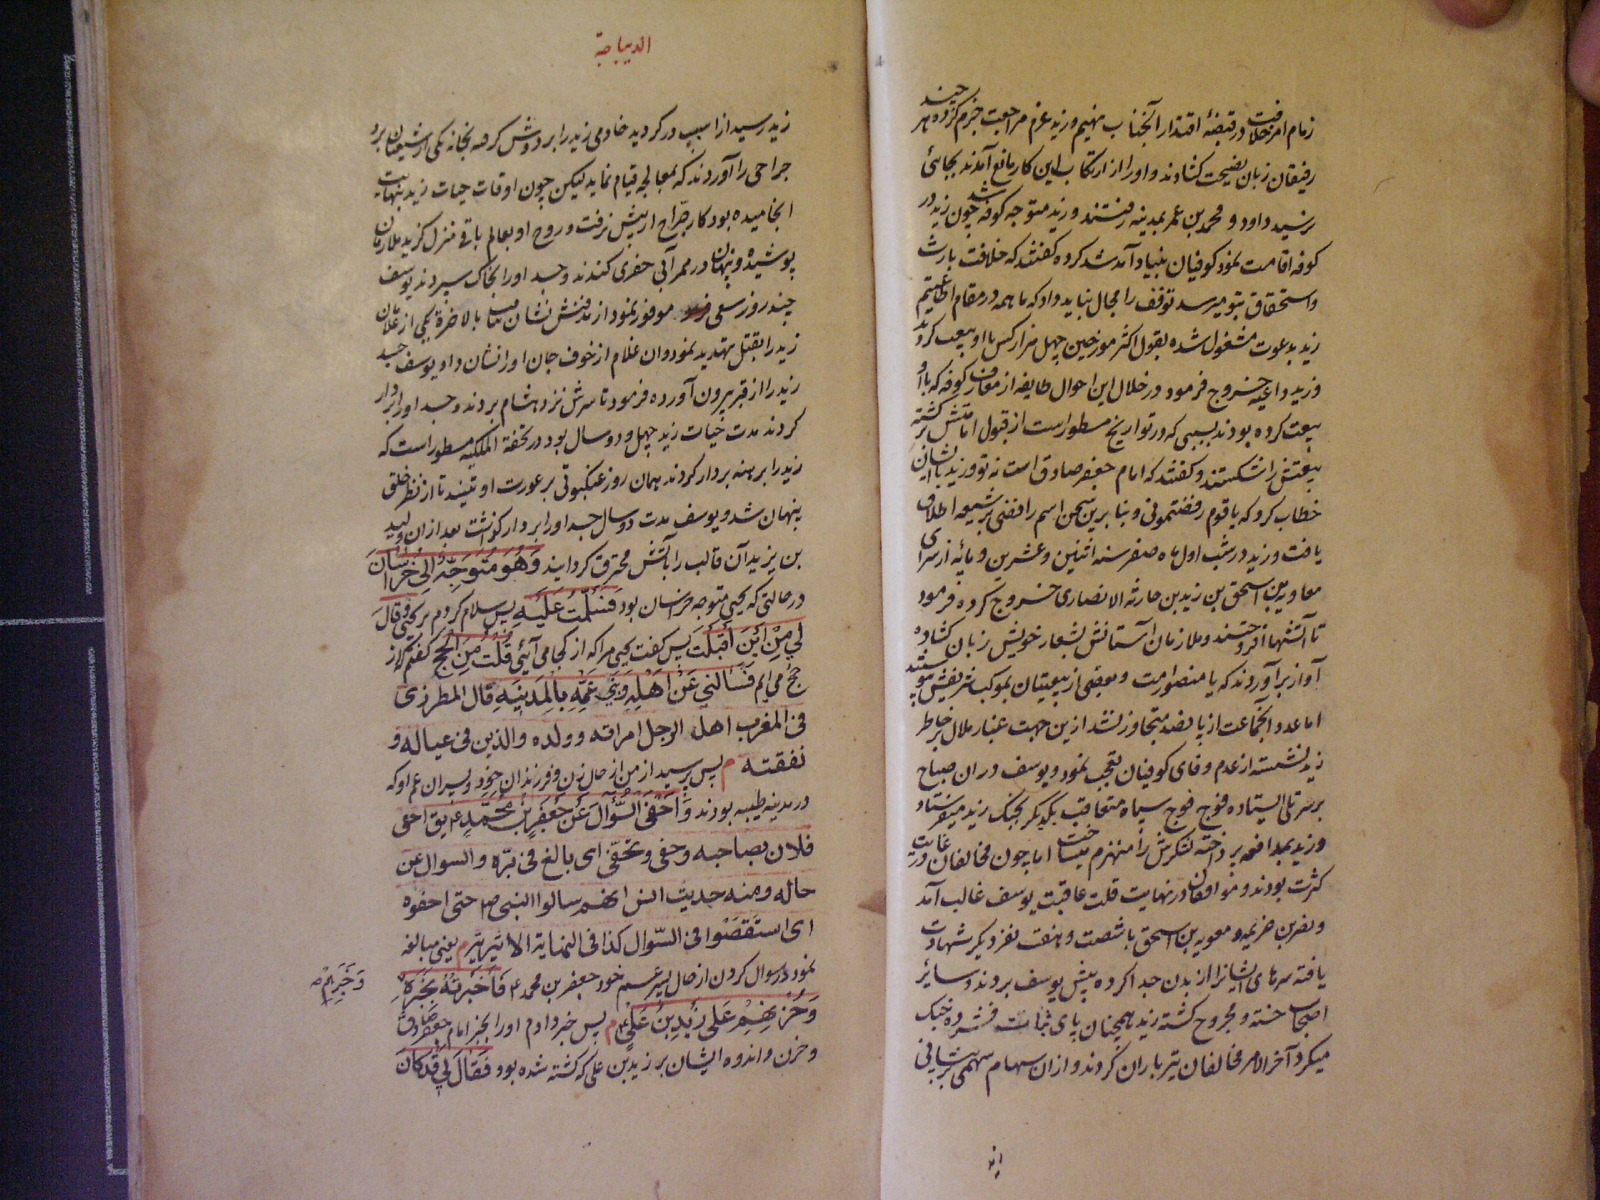 زمام امر خلافت در قبضهٔ اقتدار آنجناب نهیم و زید عزم مراجعت جزم کرده هر چند
رفیقان زبان نصیحت کشادند و اورا از ارتکاب این کار مانع آمدند بجائی
نرسید داود و محمد بن عمر بمدینه رفتند و زید متوجه کوفه شد چون زید در
کوفه اقامت نمود کوفیان بنیاد آمد شد کرده گفتند که خلافت بارث
و استحقاق بتو میرسد توقف را مجال نباید داد که ما همه در مقام اطاعتیم
زید بدعوت مشغول شده بقول اکثر مورخین چهل هزار کس با او بیعت کردند
و زید داعیه خروج فرمود در خلال این احوال طایفه از معارف کوفه که با او
بیعت کرده بودند بسببی که در تواریخ مسطور است از قبول امامتش برگشته
بیعتش را شکستند و گفتند که امام جعفر صادق است نه تو و زید با ایشان
خطاب کرد که یا قوم رفضتمونی و بنابرین سخن اسم رافضی بر شیعه اطلاق
یافت و زید در شب اول ماه صفر سنه اثنین و عشرین و مائه از سرای
معاویه بن اسحق بن زید بن حارثه الانصاری خروج کرده فرمود
تا آتشها افروختند و ملازمان آستانش بشعار خویش زبان کشاده
آواز برآوردند که یا منصور امت و بعضی از بیعتیان بموکب شریفش پیوستند
اما عدد آنجماعت از پانصد متجاوز نشد ازین جهت غبار ملال بر خاطر
زید نشسته از عدم وفای کوفیان تعجب نمود و یوسف دران صباح
بر سر تلی ایستاده فوج فوج سپاه متعاقب یکدیگر بجنک زید میفرستاد
و زید بمدافعه پرداخته لشکرش را منهزم میساخت اما چون مخالفان در غایت
کثرت بودند و موافقان در نهایت قلت عاقبت یوسف غالب آمد
و نصر بن خزیمه و معویه بن اسحق با شصت و هفت نفر دیگر شهادت
یافته سرهای ایشانرا از بدن جدا کرده پیش یوسف بردند و سائر
اصحاب خسته و مجروح کشته زید همچنان پای ثبات فشرده جنک
میکرد آخر الامر مخالفان تیر باران کردند و ازان سهام سهمی بر پیشانی
الدیباجة
زید رسید از اسب در گردید خادمی زید را بر دوش گرفته بخانه یکی از شیعیان برد
جراحی را آوردند که بمعالجه قیام نماید لیکن چون اوقات حیات زید بنهایت
انجامیده بود کار جراح از پیش نرفت و روح او بعالم باقی منزل گزید ملازمان
پوشیده و پنهان در ممر آبی حفری کندند و جسد اورا بخاک سپردند یوسف
چند روز سعی موفور نمود از مدفنش نشان نیافت بالاخرة یکی از غلامان
زید را بقتل تهدید نمود وان غلام از خوف جان اورا نشان داد یوسف جسد
زید را از قبر بیرون آورده فرمود تا سرش نزد هشام بردند و جسد اورا بردار
کردند مدت حیات زید چهل و دو سال بود در تحفة الملکیه مسطور است که
زید را برهنه بردار کردند همان روز عنکبوتی بر عورت او تنید تا از نظر خلق
پنهان شد و یوسف مدت دو سال جسد اورا بر دار گذاشت بعد ازان ولید
بن یزید آن قالب را بآتش محترق گردانید وَهُوَ مُتَوَجِّهٌ اِلی خُرَاسَانَ
در حالتی که یحیی متوجه خراسان بود فَسَلَّمْتُ عَلَیْهِ پس سلام کردم بر یحیی فَقَالَ
لِی مِنْ اَیْنَ اَقْبَلْتَ پس گفت یحیی مرا که از کجا می آئی قُلْتُ مِنَ الْحَجِّ گفتم که از
حج می ایم فَسَأَلَنِی عَنْ اَهْلِهِ وَبَنِی عَمِّهِ بِالْمَدِینَةِ قال المطرزی
فی المغرب اهل الرجل امراته وولده والذین فی عیاله و
نفقته م پس پرسید از من از حال زن و فرزندان خود و پسران عم او که
در مدینه طیبه بودند وَاَحْفَی السُّؤَالَ عَنْ جَعْفَرِ بْنِ مُحَمَّدٍ ع یق احفی
فلان بصاحبه وحفی وتحفی ای بالغ فی بره والسوال عن
حاله ومنه حدیث انس انهم سالوا النبی ص حتی احفوه
ای استقصوا فی السؤال کذا فی النهایة الاثیریة م یعنی مبالغه
نمود در سوال کردن از حال پسر عم خود جعفر بن محمد ع فَاَخْبَرْتُهُ بِخَبَرِهِ
وَخَبَرِهِمْ صح
وَحُزْنِهِمْ عَلَی زَیْدِ بْنِ عَلِیٍّ ع م پس خبر دادم اورا بخبر امام جعفر صادق
و حزن و اندوه ایشان بر زید بن علی که کشته شده بود فَقَالَ لِی قَدْ کَانَ